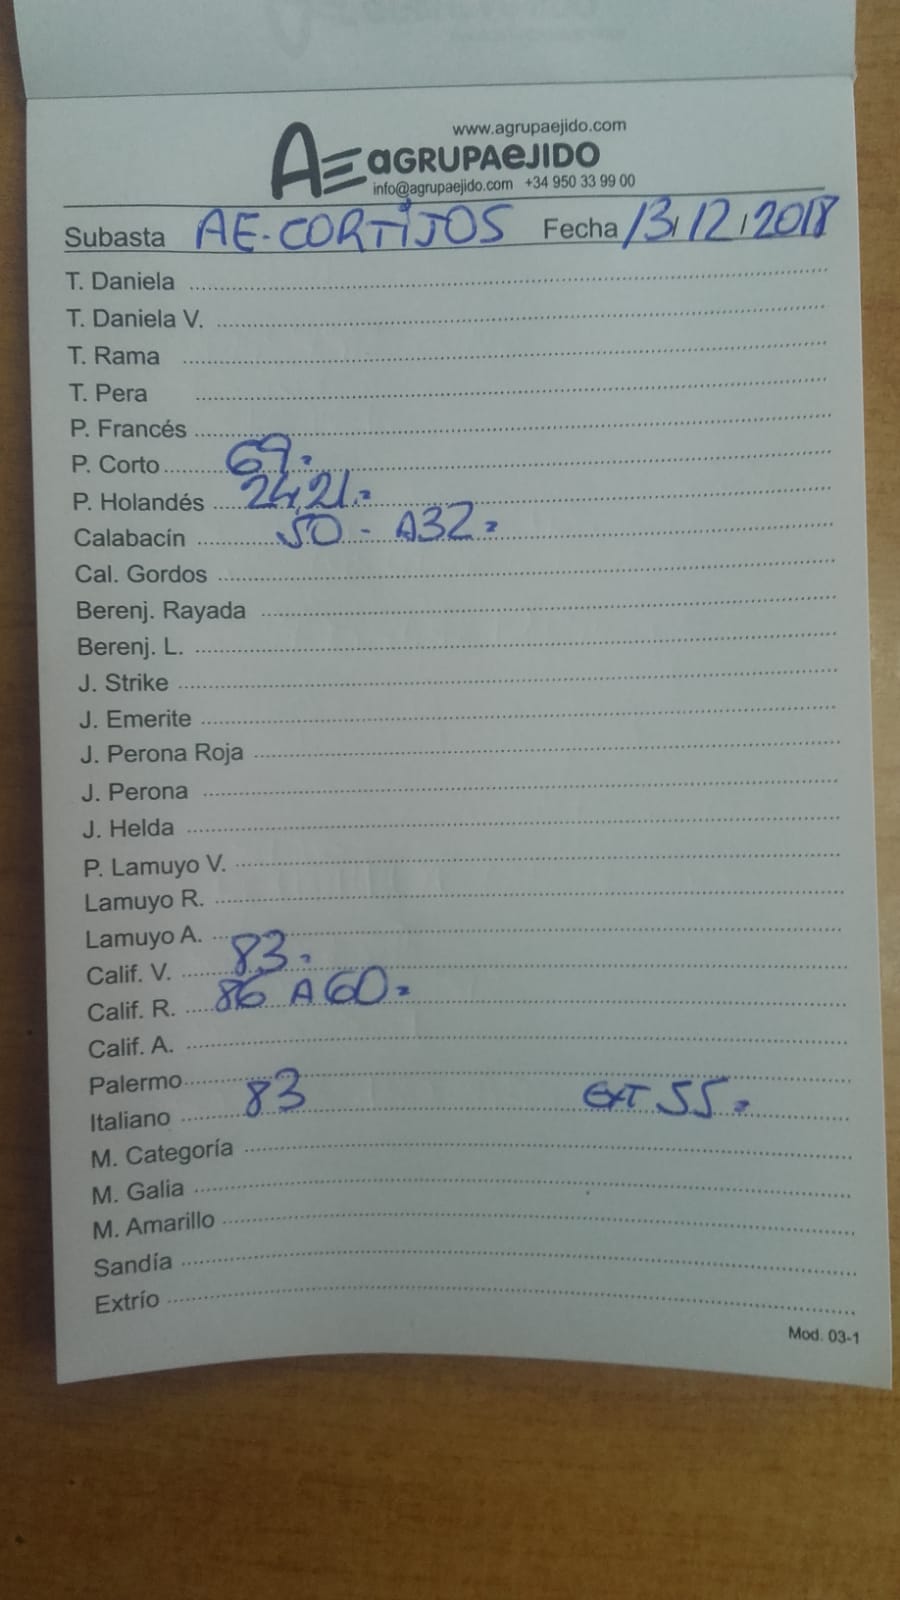 www.agrupaejido.com
AE aGRUPAeJIDO
info@agrupaejido.com +34 950 33 99 00
Subasta AE-CORTIJOS Fecha 13/12/2018
T. Daniela
T. Daniela V.
T. Rama
T. Pera
P. Francés
P. Corto 69.-
P. Holandés 24,21.=
Calabacín 50 - A32 =
Cal. Gordos
Berenj. Rayada
Berenj. L.
J. Strike
J. Emerite
J. Perona Roja
J. Perona
J. Helda
P. Lamuyo V.
Lamuyo R.
Lamuyo A.
Calif. V. 83.-
Calif. R. 86 A 60.=
Calif. A.
Palermo
Italiano 83 EXT 55.=
M. Categoría
M. Galia
M. Amarillo
Sandía
Extrío
Mod. 03-1